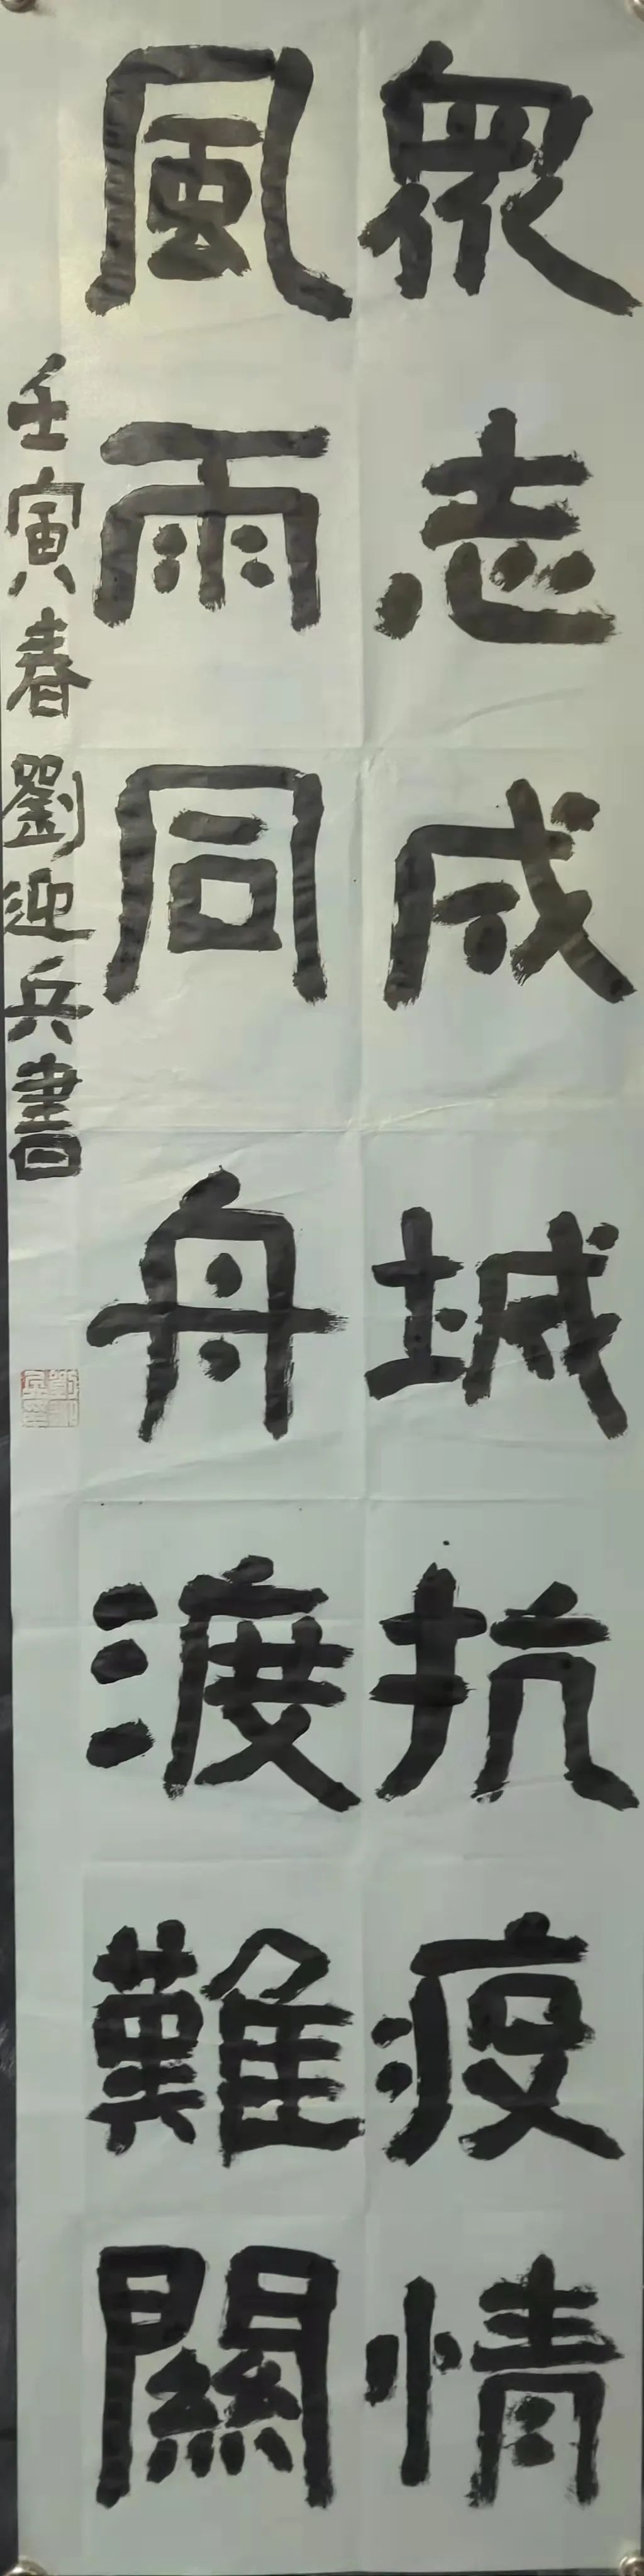 眾志成城抗疫情
風雨同舟渡難關
壬寅春劉迎兵書